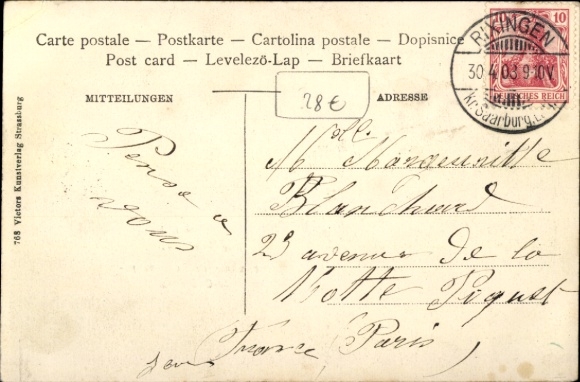 Carte postale — Postkarte — Cartolina postale — Dopisnice
Post card — Levelezö-Lap — Briefkaart
MITTEILUNGEN
ADRESSE
28€
10
DEUTSCHES REICH
RIXINGEN
30 4 03 9-10V.
Kr. Saarburg
768 Victors Kunstverlag Strassburg
Pense à
vous
Melle. Marguerite
Blanchard
23 avenue de la
Motte Piquet
Paris
France